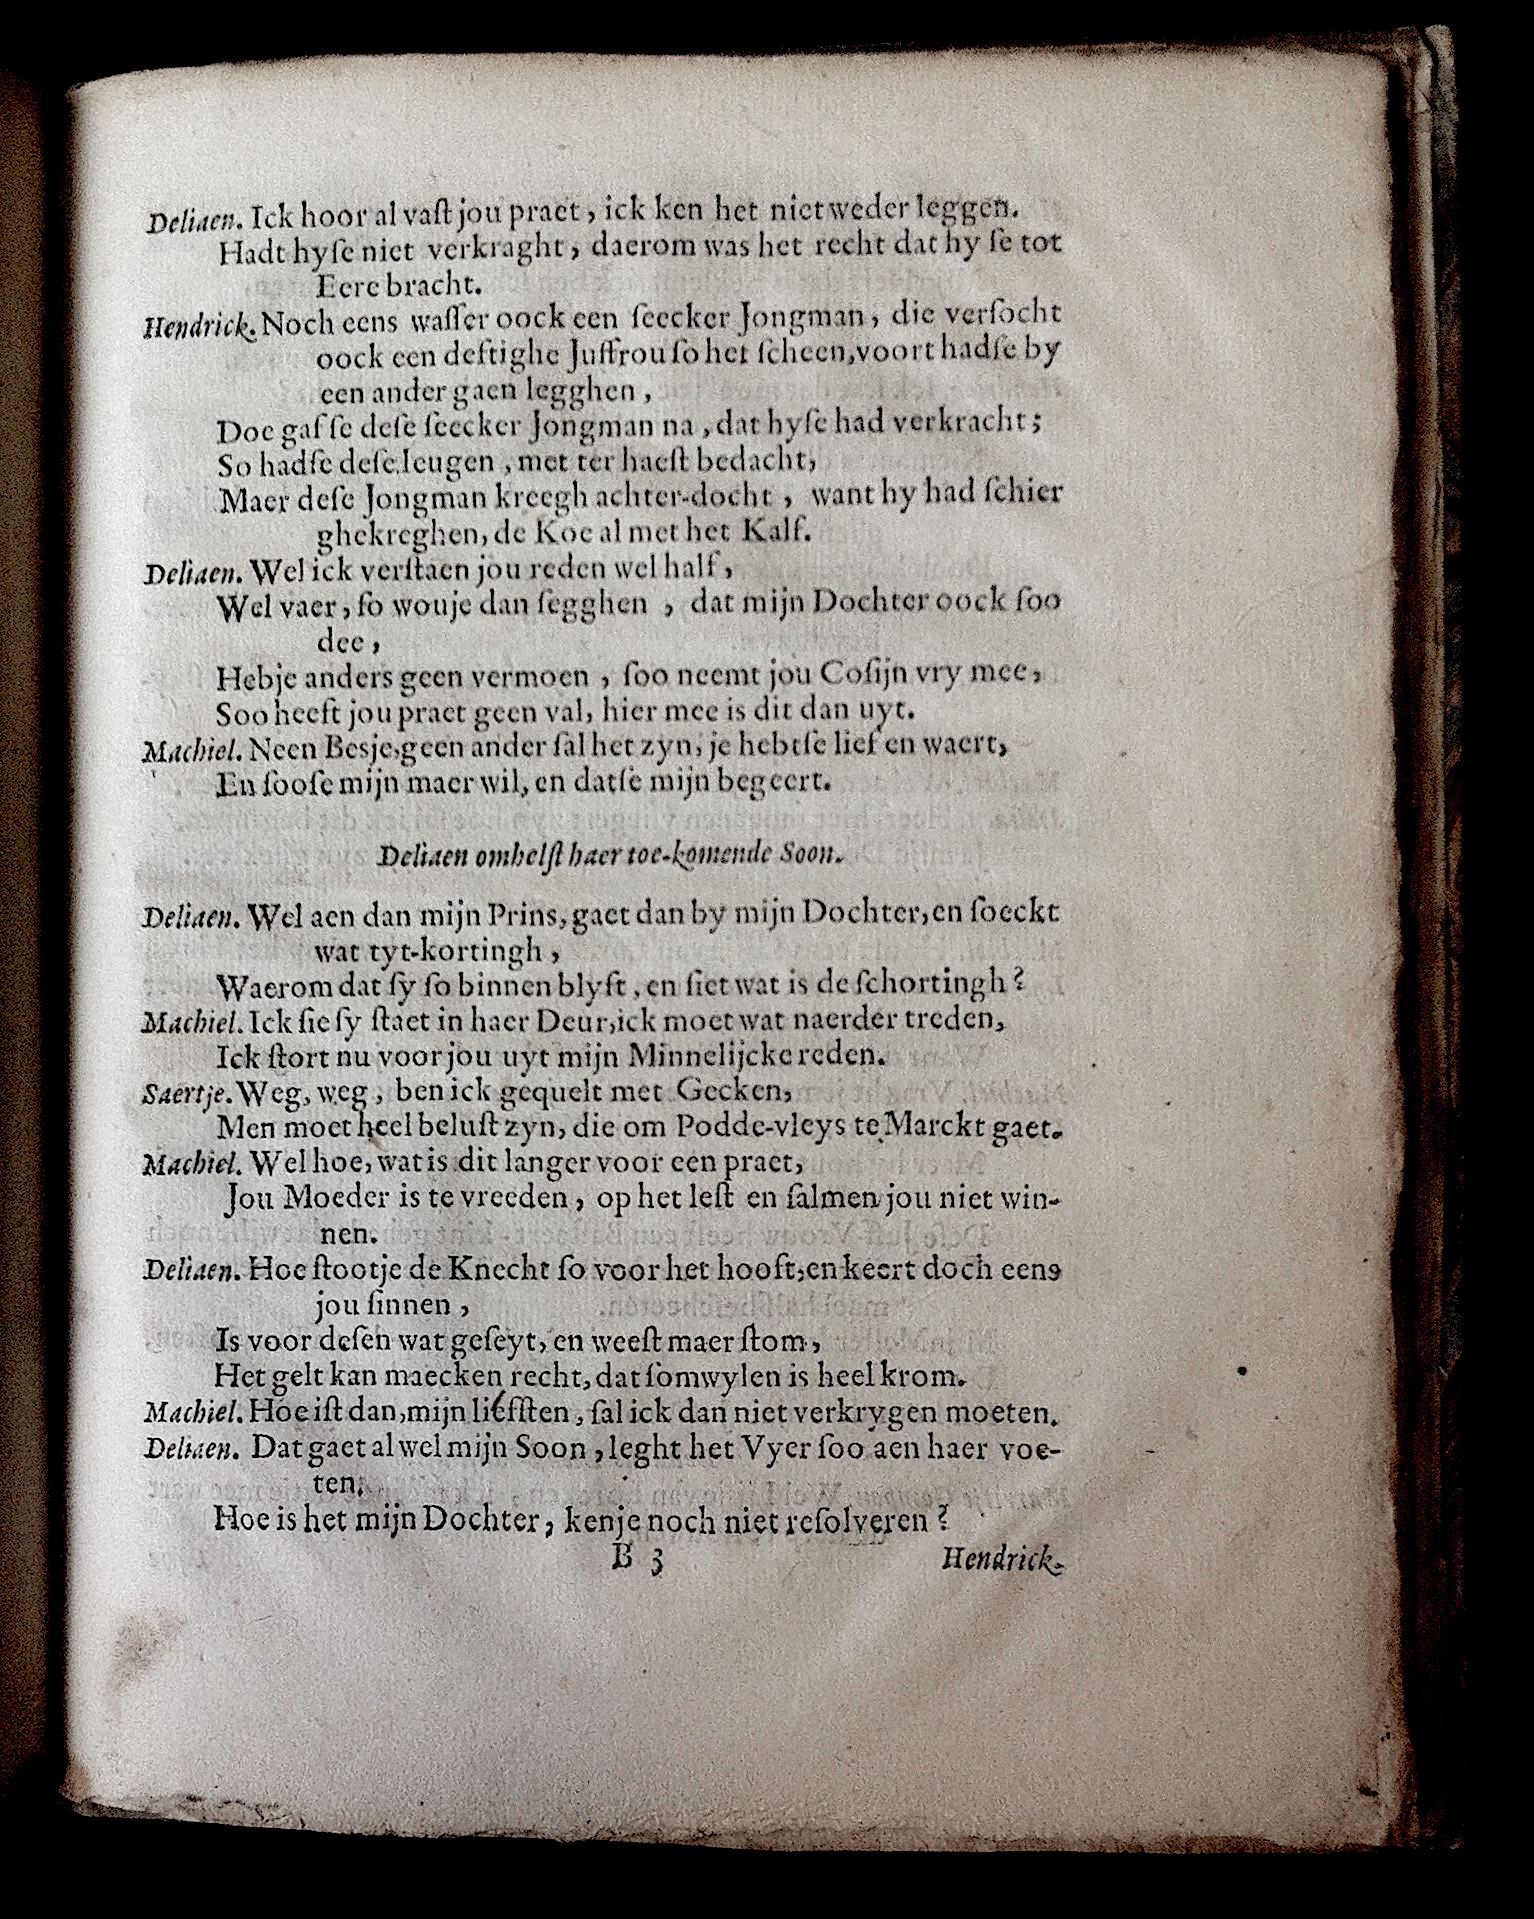 Deliaen. Ick hoor al vaſt jou praet, ick ken het niet weder leggen.
Hadt hyſe niet verkraght, daerom was het recht dat hy ſe tot
Eere bracht.
Hendrick. Noch eens waſſer oock een ſeecker Jongman, die verſocht
oock een deftighe Juffrou ſo het ſcheen, voort hadſe by
een ander gaen legghen,
Doe gaf ſe deſe ſeecker Jongman na, dat hyſe had verkracht;
So hadſe deſe leugen, met ter haeſt bedacht,
Maer deſe Jongman kreegh achter-docht, want hy had ſchier
ghekreghen, de Koe al met het Kalf.
Deliaen. Wel ick verſtaen jou reden wel half,
Wel vaer, ſo wouje dan ſegghen, dat mijn Dochter oock ſoo
dee,
Hebje anders geen vermoen, ſoo neemt jou Coſijn vry mee,
Soo heeft jou praet geen val, hier mee is dit dan uyt.
Machiel. Neen Besje, geen ander ſal het zyn, je hebtſe lief en waert,
En ſooſe mijn maer wil, en datſe mijn begeert.
Deliaen omhelſt haer toe-komende Soon.
Deliaen. Wel aen dan mijn Prins, gaet dan by mijn Dochter, en ſoeckt
wat tyt-kortingh,
Waerom dat ſy ſo binnen blyft, en ſiet wat is de ſchortingh?
Machiel. Ick ſie ſy ſtaet in haer Deur, ick moet wat naerder treden,
Ick ſtort nu voor jou uyt mijn Minnelijcke reden.
Saertje. Weg, weg, ben ick gequelt met Gecken,
Men moet heel beluſt zyn, die om Podde-vleys te Marckt gaet.
Machiel. Wel hoe, wat is dit langer voor een praet,
Jou Moeder is te vreeden, op het leſt en ſalmen jou niet win-
nen.
Deliaen. Hoe ſtootje de Knecht ſo voor het hooft, en keert doch eens
jou ſinnen,
Is voor deſen wat geſeyt, en weeſt maer ſtom,
Het gelt kan maecken recht, dat ſomwylen is heel krom.
Machiel. Hoe iſt dan, mijn liefſten, ſal ick dan niet verkrygen moeten.
Deliaen. Dat gaet al wel mijn Soon, leght het Vyer ſoo aen haer voe-
ten.
Hoe is het mijn Dochter, kenje noch niet reſolveren?
B 3 Hendrick.